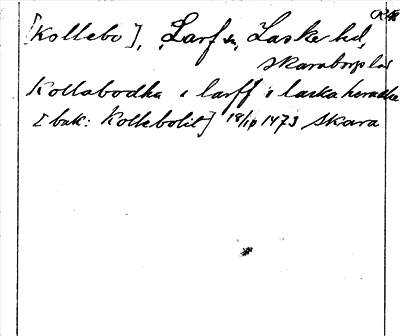 [Kollebo], Larf sn, Laske hd,
Skaraborgs län
Kollabodha i larff i laska heradhe
[bak: Kollebolit] 18/10 1473 Skara